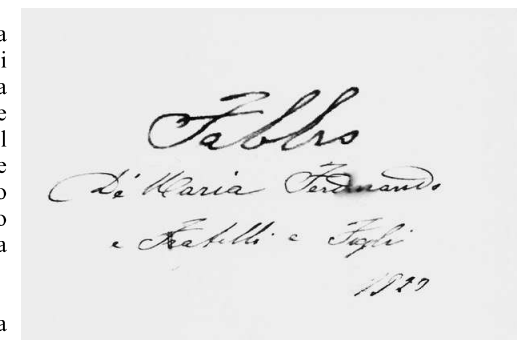 a
i
a
e
l
e
o
o
a
a
Fabbro
De' Maria Ferdinando
e Fratelli e Figli